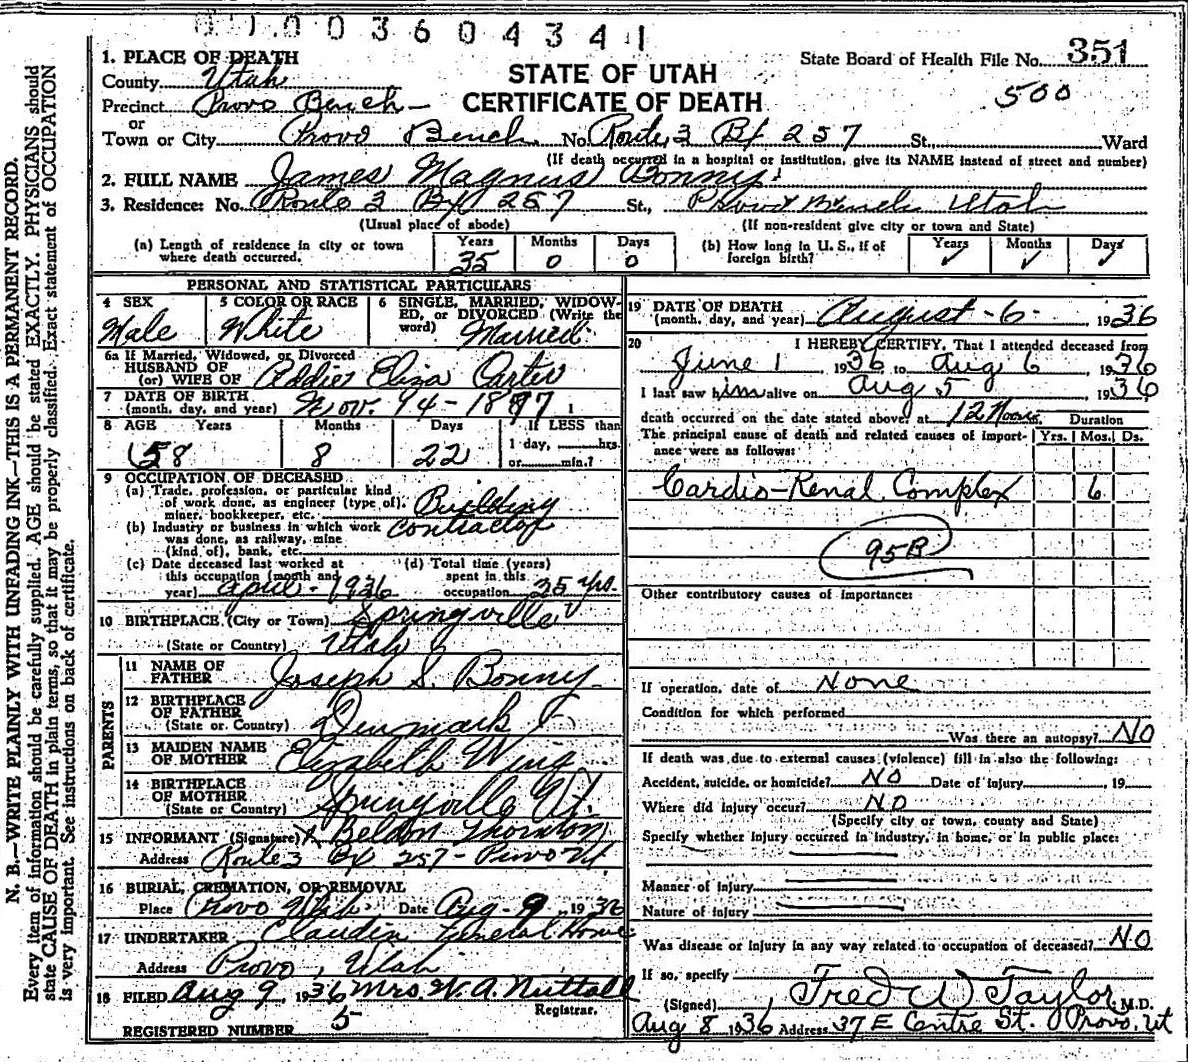 003604341
1. PLACE OF DEATH
State Board of Health File No. 351
County Utah
STATE OF UTAH
500
Precinct Provo Bench
CERTIFICATE OF DEATH
or
Town or City Provo Bench. No. Route 3 Bx 257 St., Ward
(If death occurred in a hospital or institution, give its NAME instead of street and number)
2. FULL NAME James Magnus Bonny
3. Residence: No. Route 3 Bx 257 St., Provo Bench Utah
(Usual place of abode) (If non-resident give city or town and State)
(a) Length of residence in city or town where death occurred. Years 35 Months 0 Days 0
(b) How long in U. S., if of foreign birth? Years ✓ Months ✓ Days ✓
PERSONAL AND STATISTICAL PARTICULARS
4 SEX Male
5 COLOR OR RACE White
6 SINGLE, MARRIED, WIDOWED, OR DIVORCED (Write the word) Married
6a If Married, Widowed, or Divorced
HUSBAND OF
(or) WIFE OF Addie Eliza Carter
7 DATE OF BIRTH
(month, day, and year) Nov. 14-1877
8 AGE Years 58 Months 8 Days 22
If LESS than
1 day, hrs.
or min.?
9 OCCUPATION OF DECEASED
(a) Trade, profession, or particular kind
of work done, as engineer (type of),
miner, bookkeeper, etc. Building
(b) Industry or business in which work Contractor
was done, as railway, mine
(kind of), bank, etc.
(c) Date deceased last worked at
this occupation (month and
year) April-1936
(d) Total time (years)
spent in this
occupation 35 yrs.
10 BIRTHPLACE (City or Town) Springville
(State or Country) Utah
PARENTS
11 NAME OF
FATHER Joseph S. Bonny
12 BIRTHPLACE
OF FATHER
(State or Country) Denmark
13 MAIDEN NAME
OF MOTHER Elizabeth Wing
14 BIRTHPLACE
OF MOTHER
(State or Country) Springville Ut.
15 INFORMANT (Signature) x Beldon Thornton
Address Route 3 Bx 257- Provo Ut
16 BURIAL, CREMATION, OR REMOVAL
Place Provo Utah Date Aug-9, 1936
17 UNDERTAKER Claudin Funeral Home
Address Provo, Utah
18 FILED Aug 9, 1936 Mrs. W. A. Nuttall
Registrar.
REGISTERED NUMBER 5
19 DATE OF DEATH
(month, day, and year) August-6-, 1936
20 I HEREBY CERTIFY, That I attended deceased from
June 1 1936 to Aug 6, 1936
I last saw him alive on Aug 5, 1936
death occurred on the date stated above, at 12 Noon. Duration
The principal cause of death and related causes of importance were as follows: Yrs. Mos. Ds.
Cardio-Renal Complex 6
95B
Other contributory causes of importance:
If operation, date of None
Condition for which performed
Was there an autopsy? NO
If death was due to external causes (violence) fill in also the following:
Accident, suicide, or homicide? NO Date of injury , 19
Where did injury occur? NO
(Specify city or town, county and State)
Specify whether injury occurred in industry, in home, or in public place:
Manner of injury
Nature of injury
Was disease or injury in any way related to occupation of deceased? NO
If so, specify
(Signed) Fred W Taylor, M.D.
Aug 8 1936 Address 37 E Centre St. Provo, Ut
N. B.—WRITE PLAINLY WITH UNFADING INK—THIS IS A PERMANENT RECORD.
Every item of information should be carefully supplied. AGE should be stated EXACTLY. PHYSICIANS should
state CAUSE OF DEATH in plain terms, so that it may be properly classified. Exact statement of OCCUPATION
is very important. See instructions on back of certificate.